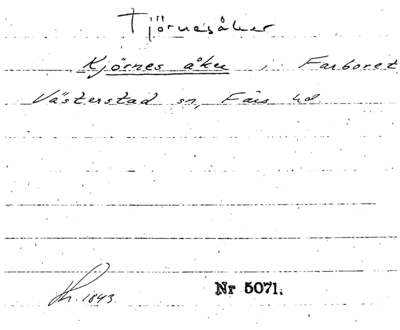 Tjörnesåker
Kjörnes åker i Farboret
Västerstad sn, Färs hd
1843
Nr 5071.